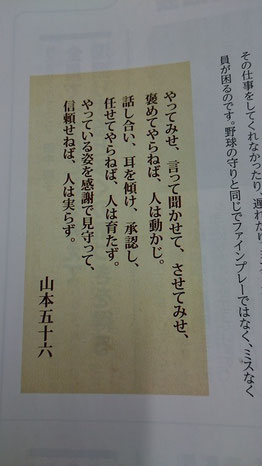 その仕事をしてくれなかったり、遅れたり、ミス
員が困るのです。野球の守りと同じでファインプレーではなく、ミスなく
やってみせ、言って聞かせて、させてみせ、
褒めてやらねば、人は動かじ。
話し合い、耳を傾け、承認し、
任せてやらねば、人は育たず。
やっている姿を感謝で見守って、
信頼せねば、人は実らず。
山本五十六